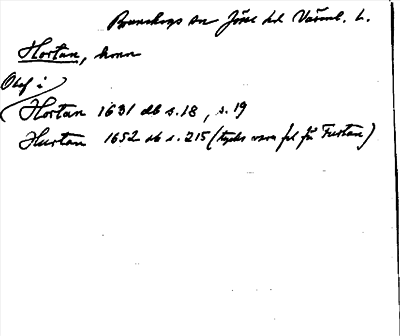 Brunskogs sn Jösse hd Värml. l.
Hortan, hemn
Olof i
Hortan 1631 db s. 18, s. 19
Hurtan 1652 db s. 215 (tycks vara fel för Furtan)